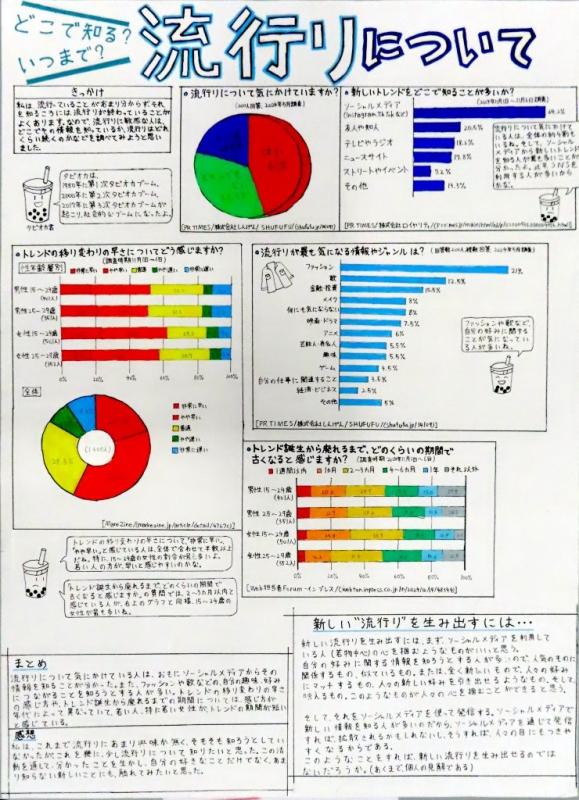 どこで知る?
いつまで?
流行りについて
きっかけ
私は、流行っていることがあまり分からず、それ
を知るころには流行りが終わっていることが
よくあります。なので、流行りに敏感な人は、
どこでその情報を知っているか、流行りはどれ
くらい続くのかなどを調べてみようと思い
ました。
タピオカは、
1980年に第1次タピオカブーム。
2000年に第2次タピオカブーム。
2019年に第3次タピオカブームが
起こり、社会的なブームになったよ。
タピオカ君
•流行りについて気にかけていますか?
[PR TIMES/株式会社しんげん/SHUFUFU
•新しいトレンドをどこで知ることが多いか?
ソーシャルメディア
友人や知人
テレビやラジオ
ニュースサイト
ストリートやイベント
その他
•トレンドの移り変わりの早さについてどう感じますか?
性年齢層別
非常に早い
やや早い
普通
やや遅い
非常に遅い
男性15〜24歳
男性25〜29歳
女性15〜24歳
女性25〜29歳
0%
20%
40%
60%
80%
100%
全体
非常に早い
やや早い
普通
やや遅い
非常に遅い
•流行りが最も気になる情報やジャンルは?
ファッション
21%
歌
12.5%
金融・投資
10.5%
メイク
8%
特に気にならない
8%
映画・ドラマ
7.5%
アニメ
6%
芸能人・著名人
5.5%
趣味
5.5%
ゲーム
4.5%
自分の仕事に関連すること
3.5%
経済・ビジネス
2.5%
その他
5%
[PR TIMES/株式会社しんげん/SHUFUFU
ファッションや歌など、
自分の好みに関する
ことが気になってい
る人が多いね。
•トレンド誕生から廃れるまで、どのくらいの期間で
古くなると感じますか?
1週間以内
1か月
2〜3カ月
4〜6カ月
1年
それ以外
男性15〜24歳
男性25〜29歳
女性15〜24歳
女性25〜29歳
0%
20%
40%
60%
80%
100%
トレンドの移り変わりの早さについて、"非常に早い"、
"やや早い"と感じている人は、全体で合わせて半数以上
だね。特に、15〜24歳の女性の割合が多いよ。
若い人の方が、早いと感じやすいのかな。
トレンド誕生から廃れるまで、どのくらいの期間で
古くなると感じますか。の質問では、2〜3カ月以内と
感じている人が多く、右上のグラフと同様、15〜24歳の
女性が最も多いね。
まとめ
流行りについて気にかけている人は、おもにソーシャルメディアからその
情報を知ることが分かった。また、ファッションや歌などの、自分の趣味、好み
につながることを知ろうとする人が多い。トレンドの移り変わりの早さ
の感じ方や、トレンド誕生から廃れるまでの期間については、感じ方が
年代によって異なっていて、若い人、特に若い女性がトレンドの期間が短い
と感じている。
感想
私は、これまで流行りにあまり興味が無く、そもそも知ろうとしてい
なかったが、これを機に、少し流行りについて知りたいと思った。この活
動を通して分かったことを生かし、自分の好きなことだけでなく、あま
り知らない新しいことにも、触れてみたいと思った。
新しい"流行り"を生み出すには…
新しい流行りを生み出すには、まず、ソーシャルメディアを利用して
いる人(若物中心)の心を掴むようなものがいいと思う。
自分の好みに関する情報を知ろうとする人が多いので、人気のものに
関係するもの、似ているもの。または、全く新しいもので、人々の好み
にマッチするもの、人々の新しい好みを引き出せるようなもの。そして、
映えるもの。このようなものが人々の心を掴むことができると思う。
そして、それをソーシャルメディアを使って発信する。ソーシャルメディアで
新しい情報を知る人が多いのだから、ソーシャルメディアを通じて発信
すれば、拡散されるかもしれないし、そうすれば、人々の目にもつきや
すくなるからである。
このようなことをすれば、新しい流行りを生み出せるのでは
ないだろうか。(あくまで、個人の見解である)